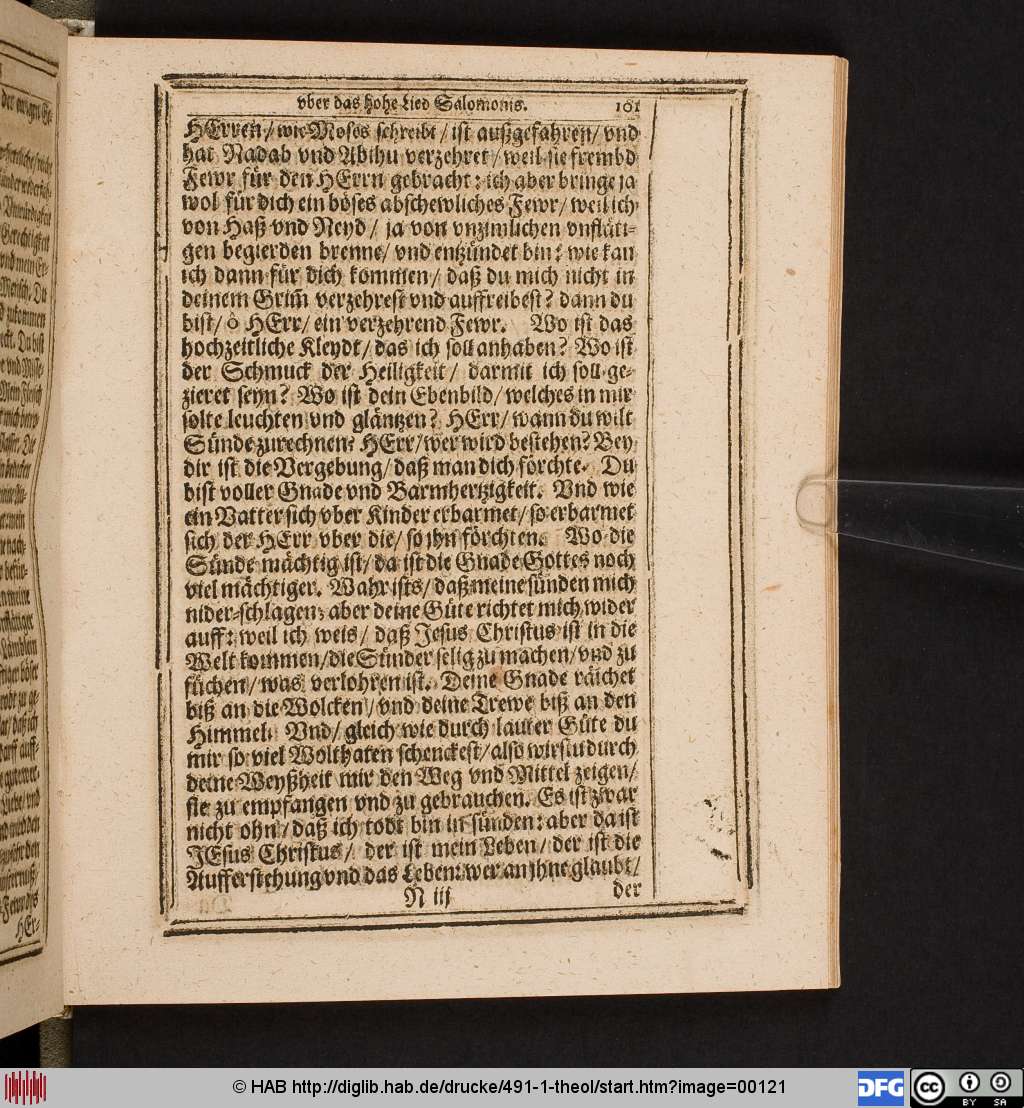 vber das Hohe Lied Salomonis. 101
HErren / wie Moses schreibt / ist außgefahren / vnd
hat Nadab vnd Abihu verzehret / weil sie frembd
Fewr für den HErrn gebracht: ich aber bringe ja
wol für dich ein böses abschewliches Fewr / weil ich
von Haß vnd Neyd / ja von vnzimlichen vnfläti-
gen begierden brenne / vnd entzündet bin: wie kan
ich dann für dich kommen / daß du mich nicht in
deinem Grim̃ verzehrest vnd auffreibest? dann du
bist / ô HErr / ein verzehrend Fewr. Wo ist das
hochzeitliche Kleydt / das ich soll anhaben? Wo ist
der Schmuck der Heiligkeit / darmit ich soll ge-
zieret seyn? Wo ist dein Ebenbild / welches in mir
solte leuchten vnd gläntzen? HErr / wann du wilt
Sünde zurechnen? HErr / wer wird bestehen? Bey
dir ist die Vergebung / daß man dich förchte. Du
bist voller Gnade vnd Barmhertzigkeit. Vnd wie
ein Vatter sich vber Kinder erbarmet / so erbarmet
sich der HErr vber die / so jhn förchten. Wo die
Sünde mächtig ist / da ist die Gnade Gottes noch
viel mächtiger. Wahr ists / daß meine sünden mich
nider-schlagen: aber deine Güte richtet mich wider
auff: weil ich weis / daß Jesus Christus ist in die
Welt kommen / die Sünder selig zu machen / vnd zu
süchen / was verlohren ist. Deine Gnade räichet
biß an die Wolcken / vnd deine Trewe biß an den
Himmel. Vnd / gleich wie durch lauter Güte du
mir so viel Wolthaten schenckest / also wirstu durch
deine Weyßheit mir den Weg vnd Mittel zeigen /
sie zu empfangen vnd zu gebrauchen. Es ist zwar
nicht ohn / daß ich todt bin in sünden: aber da ist
JEsus Christus / der ist mein Leben / der ist die
Aufferstehung vnd das Leben: wer an jhne glaubt /
N iij der
© HAB http://diglib.hab.de/drucke/491-1-theol/start.htm?image=00121
DFG
cc BY SA